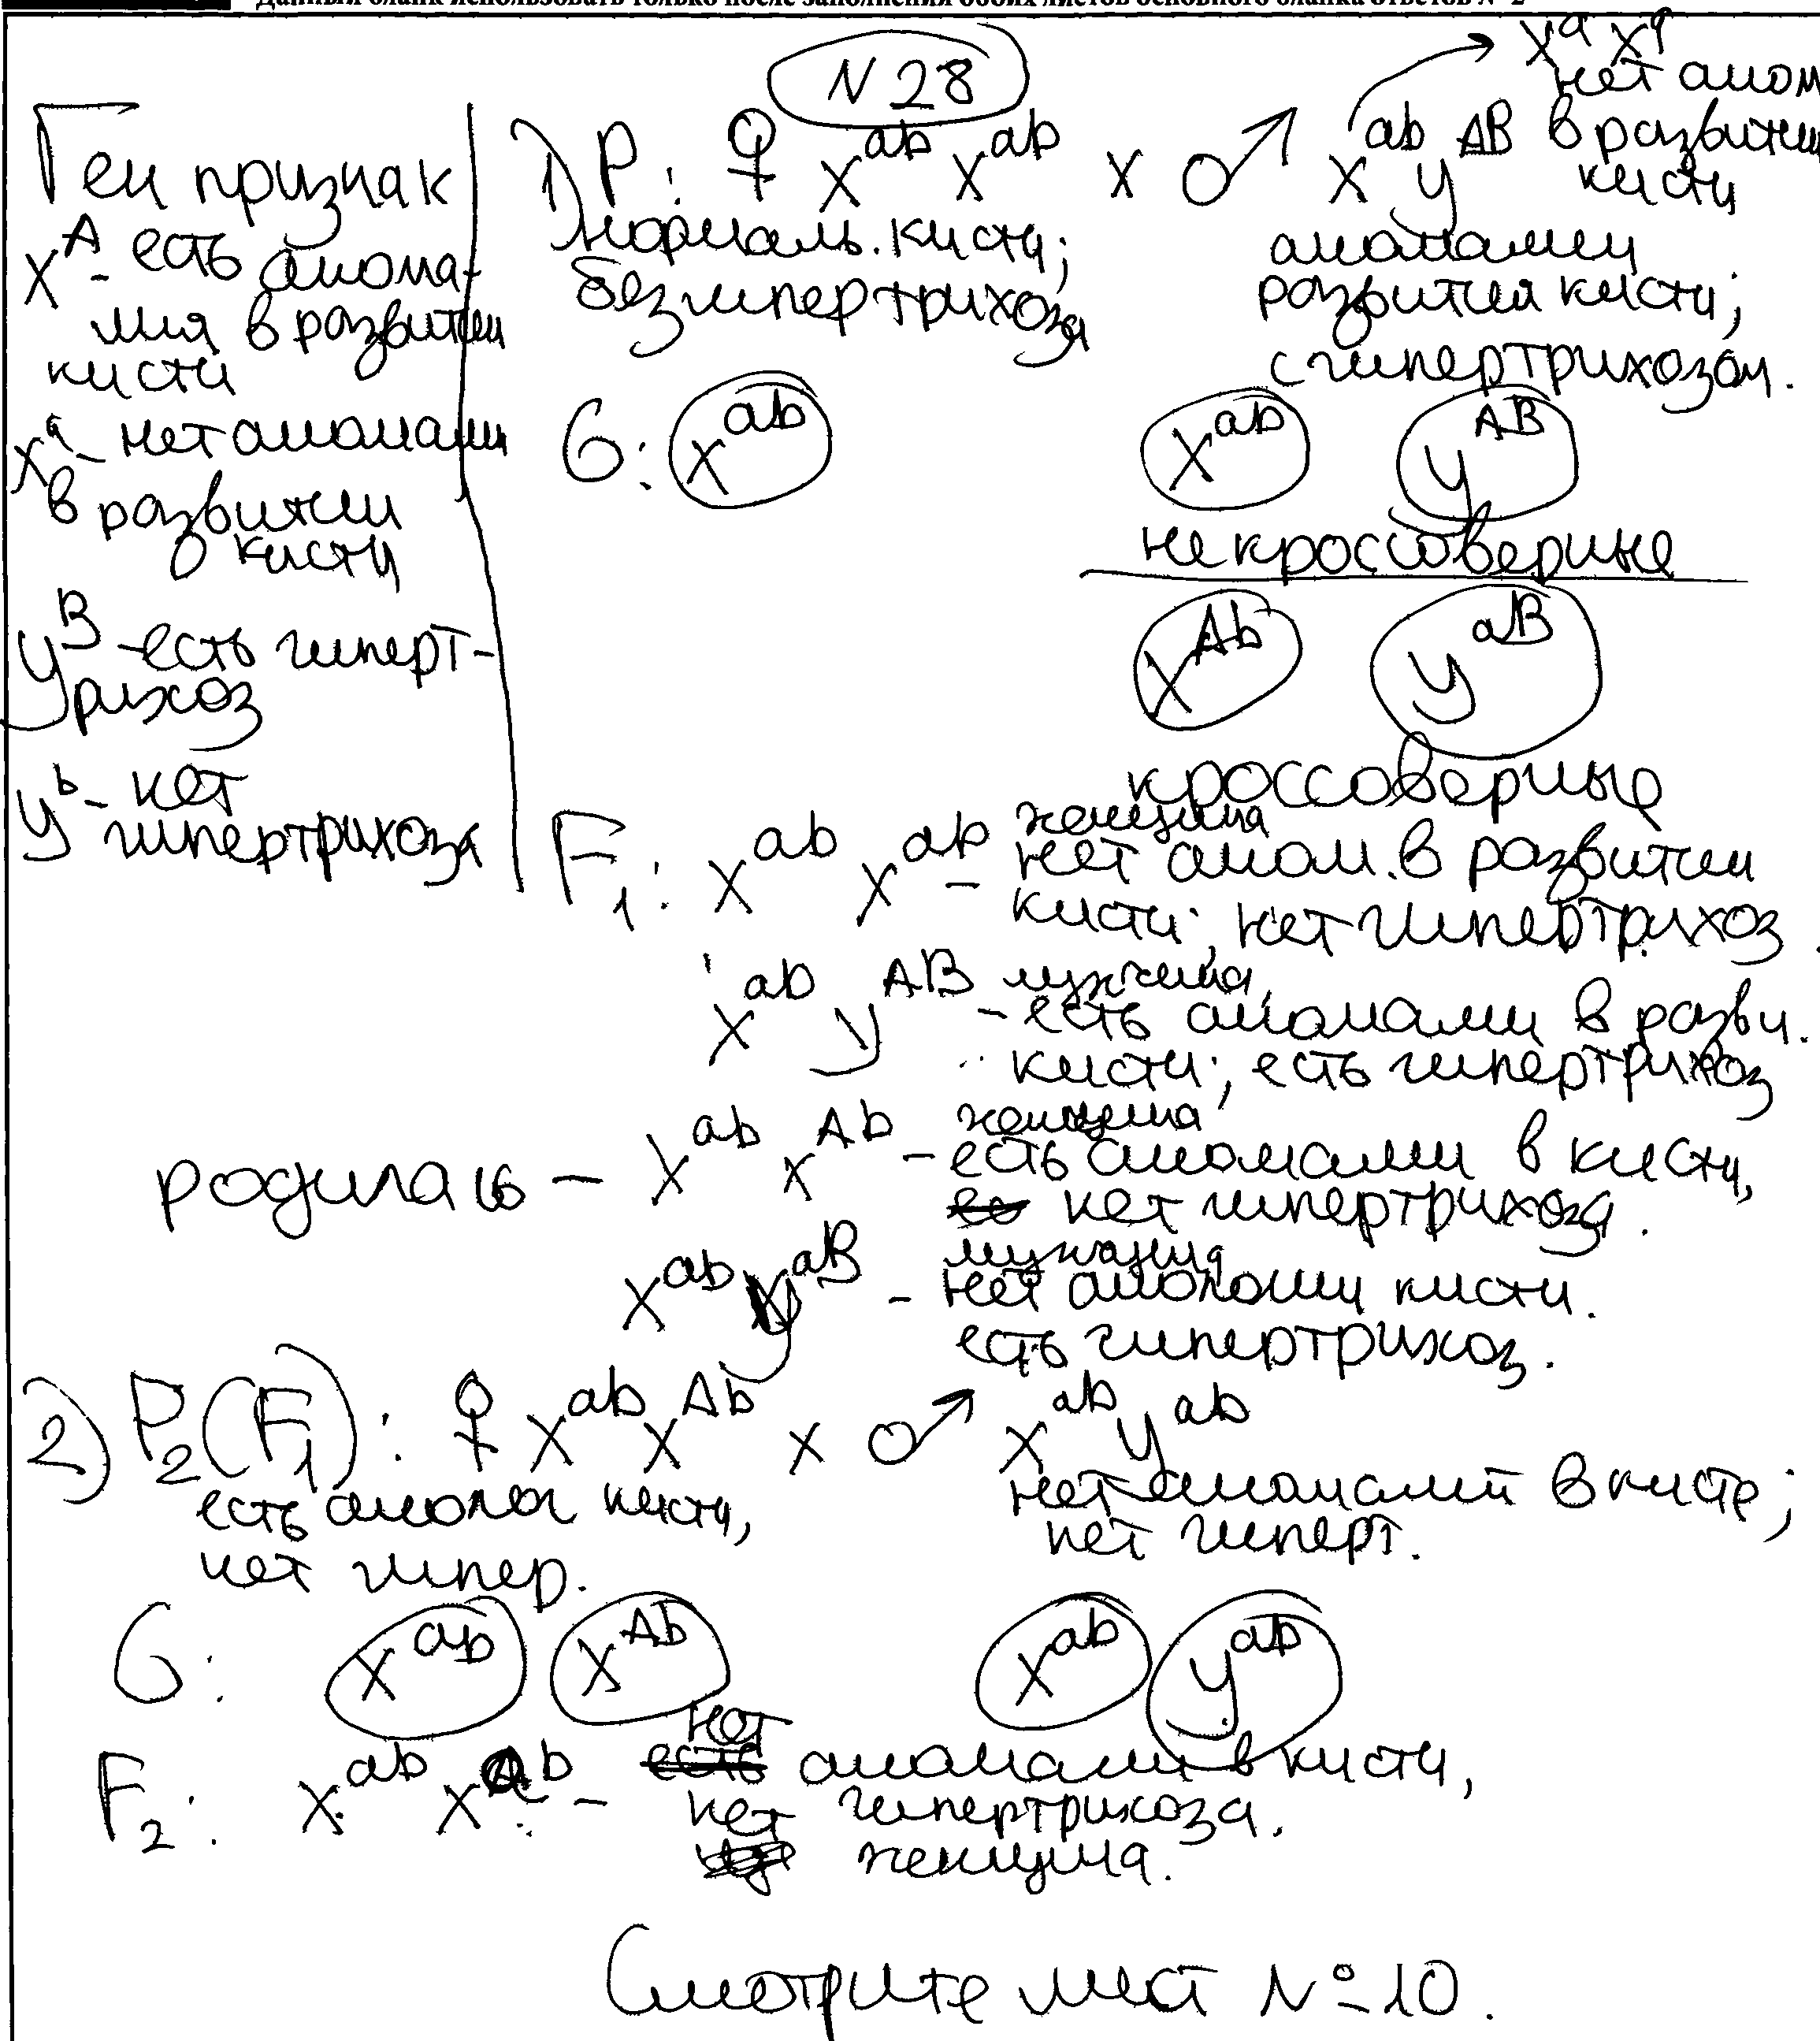 Данный бланк использовать только после заполнения обоих листов основного бланка ответов № 2
N 28
Ген признак
X^A - есть анома-
лия в развитии
кисти
X^a - нет аномалии
в развитии
кисти
У^B - есть гиперт-
рихоз
У^b - нет
гипертрихоза
1) P: ♀ X^ab X^ab x ♂ X^ab У^AB
X^a X^a
нет аном
в развитии
кисти
нормаль. кисти;
без гипертрихоза
аномалии
развития кисти;
с гипертрихозом.
G: X^ab X^ab У^AB
некроссоверные
X^Ab У^aB
кроссоверные
F1: X^ab X^ab - женщина
нет аном. в развитии
кисти; нет гипертрихоз.
X^ab У^AB мужчина,
- есть аномалии в разви.
кисти; есть гипертрихоз
женщина
родилась - X^ab X^Ab - есть аномалии в кисти,
нет гипертрихоза.
мужчина
X^ab У^aB - нет аномалии кисти.
есть гипертрихоз.
2) P2 (F1): ♀ X^ab X^Ab x ♂ X^ab У^ab
есть аномал кисти,
нет гипер.
нет аномалий в кисте;
нет гиперт.
G: X^ab X^Ab X^ab У^ab
F2: X^ab X^ab - нет аномалии в кисти,
нет гипертрихоза.
женщина.
Смотрите лист №10.